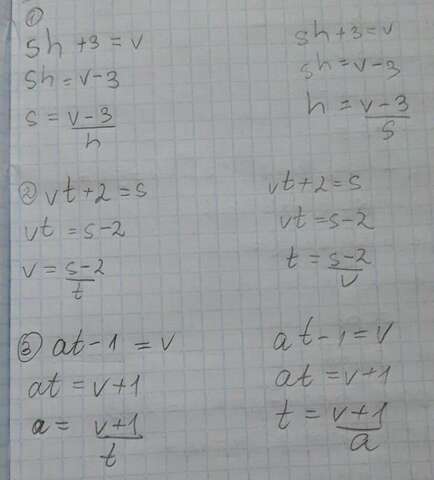 ①
sh + 3 = v
sh = v - 3
s = (v - 3)/h
sh + 3 = v
sh = v - 3
h = (v - 3)/s
② vt + 2 = s
vt = s - 2
v = (s - 2)/t
vt + 2 = s
vt = s - 2
t = (s - 2)/v
③ at - 1 = v
at = v + 1
a = (v + 1)/t
at - 1 = v
at = v + 1
t = (v + 1)/a